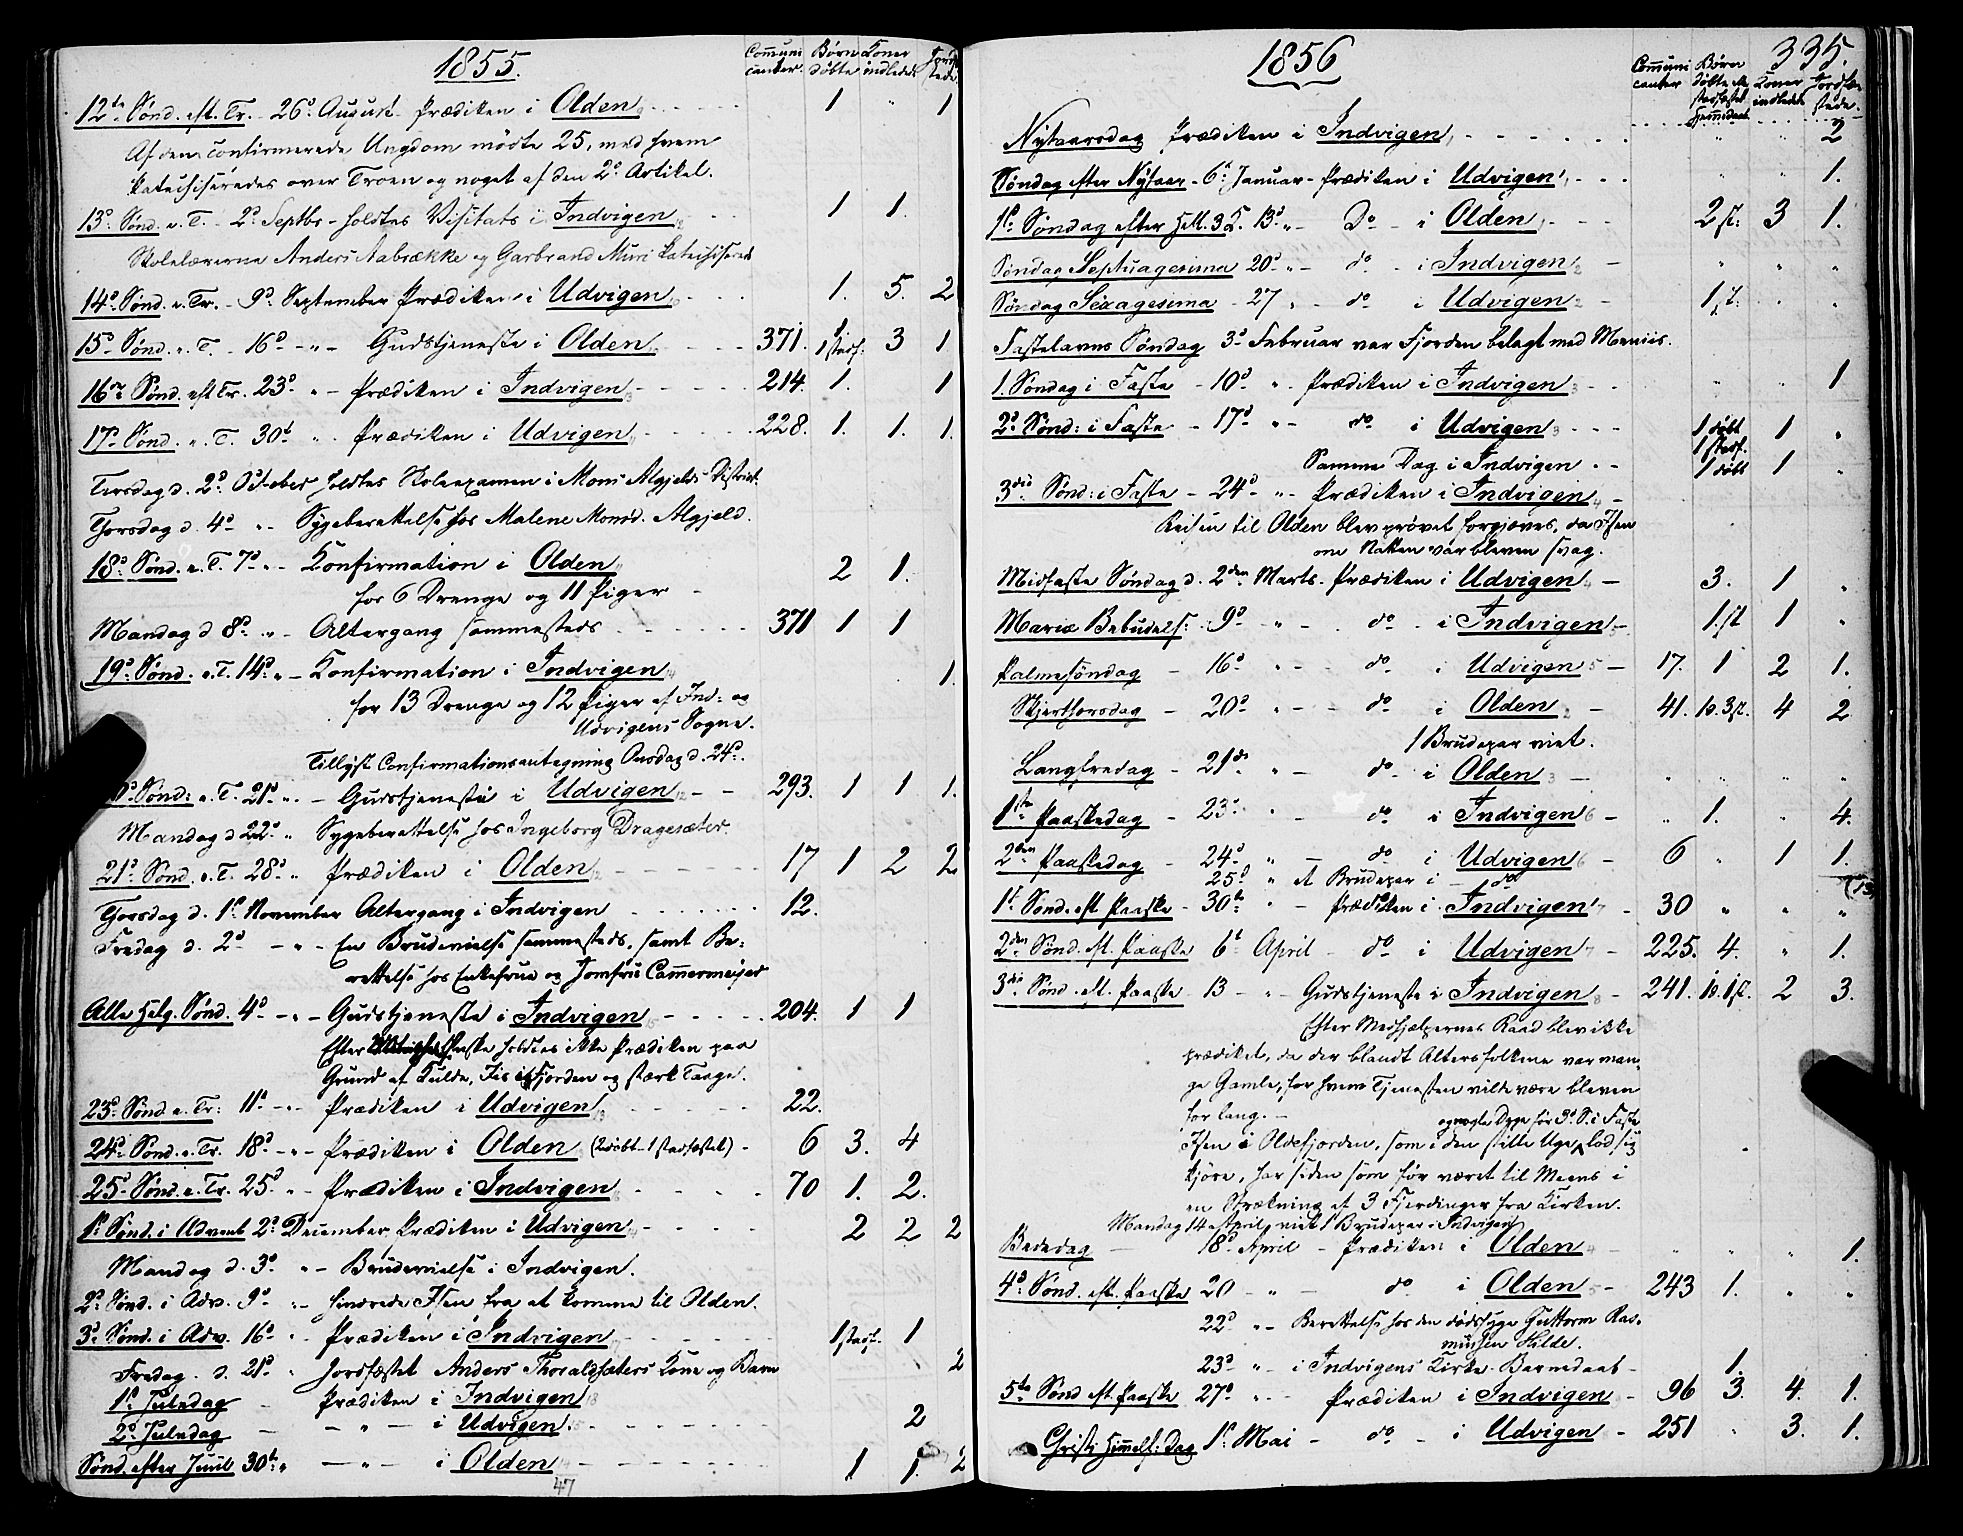 1855.
Communicanter. Børn døbte Koner indledede Jordfæstede
12te Sønd. eft. Tr. 26d August Prædiken i Olden 1 " 1
Af den confirmerede Ungdom mødte 25, med hvem
katechiseredes over Troen og noget af den 2d Artikel.
13d Sønd. e. T. - 2d Septbr holdtes Visitats i Indvigen 1 1.
Skolelærerne Anders Aabrække og Garbrand Muri katechiserede
14d Sønd. e. Tr. - 9d September Prædiken i Udvigen 1. 5. 2
15d Sønd. e. T. - 16d - " - Gudstjeneste i Olden 371. 1 1 stadf. 3 1
16de Sønd. eft Tr. 23d " - Prædiken i Indvigen 214. 1. 1
17d Sønd. e. T. 30te " - Prædiken i Udvigen 228. 1. 1. 1.
Tirsdag d. 2d October holdtes Skoleexamen i Mons Algjelds District
Torsdag d. 4d " - Sygeberettelse hos Malene Monsd. Algjeld.
18d Sønd. e. T. 7d " - Confirmation i Olden 2 1.
for 6 Drenge og 11 Piger -
Mandag d 8d " - Altergang sammesteds 371 1 1
19d Sønd. e. T. 14d " - Confirmation i Indvigen 1.
for 13 Drenge og 12 Piger af Ind- og
Udvigens Sogne.
Tillyst Confirmationsantegning Onsdag d. 24d.
Sønd: e. T. 21d " - Gudstjeneste i Udvigen 293. 1 1 1.
Mandag d 22d " Sygeberettelse hos Ingeborg Dragesæter.
21d Sønd. e. T. 28d " Prædiken i Olden 17 1 2 2
Torsdag d. 1d November Altergang i Indvigen 12.
Fredag d. 2d - " - En Brudevielse sammesteds, samt Be-
rettelse hos Enkefrue og Jomfru Cammermeijer
Alle Helg. Sønd. 4d - " - Gudstjeneste i Indvigen 204. 1 1
Efter holdtes ikke Prædiken paa
Grund af Kulde, Iis i Fjorden og stærk Taage.
23d Sønd e. Tr: 11d - " - Prædiken i Udvigen 22.
24d Sønd. e. Tr. 18d - " - Prædiken i Olden (2 døbt - 1 stadfæstet) - 6 3. 4
25d Sønd. e. Tr. 25d " - Prædiken i Indvigen 70 1. 2.
1d Sønd. i Advent 2d December Prædiken i Udvigen 2 2 2
Mandag d. 3d " - Brudevielse i Indvigen.
2d Sønd. i Adv. 9d " - hindrede Isen fra at komme til Olden.
3d Sønd. i Adv. 16d " - Prædiken i Indvigen 1 stadf. 1
Fredag d. 21d " Jordfæstet Anders Thoraldsæters Kone og Barn 2
1d Juledag - Prædiken i Indvigen
2d Juledag - " - i Udvigen 2
Sønd. efter Juul 30te " - " - i Olden 1 1. 2
47
1856
335.
Communicanter Børn døbte ell. stadfæstet hjemmedøbt Koner indledede Jordfæstede.
Nytaarsdag Prædiken i Indvigen " " 2
Søndag efter Nytaar - 6t Januar - Prædiken i Udvigen " " 1.
1d Søndag efter Hell. 3 K. 13d " - Do - i Olden 2 st: 3 1.
Søndag Septuagesima 20d " - do - i Indvigen " " "
Søndag Sexagesima - 27 " - do i Udvigen 1 st. " "
Fastelavns Søndag 3d Februar var Fjorden belagt med Meniis.
1. Søndag i Faste - 10d " - Prædiken i Indvigen " " 1
2d Sønd: i Faste - 17d " - do i Udvigen 1 døbt 1 stadf. 1 "
Samme Dag i Indvigen 1 døbt 1 "
3die Sønd: i Faste - 24d " - Prædiken i Indvigen -
Reisen til Olden blev prøvet forgjæves, da Isen
om Natten var bleven svag.
Midfaste Søndag d. 2den Marts - Prædiken i Udvigen - 3. 1 "
Mariæ Bebudels: - 9d " - do - i Indvigen 1. st 1 "
Palmesøndag - 16d " - do i Udvigen - 17. 1 2 1.
Skjertorsdag - 20d " - do i Olden - 41. 10. 3 st. 4 2
1 Brudepar viet.
Langfredag - 21de " - do i Olden - " " " "
1ste Paaskedag - 23d " do i Indvigen - " 1. " 4.
2den Paaskedag - 24d " - do i Udvigen - 6 " 1 1.
25d " et Brudepar i do
1t Sønd. eft Paaske - 30te " - Prædiken i Indvigen - 30 " " "
2den Sønd. eft. Paaske 6t April - do i Udvigen - 225. 4. " 1.
3die Sønd. eft. Paaske 13 - " - Gudstjeneste i Indvigen - 241. 10. 1 st. 2 3.
Efter Medhjælpernes Raad blev ikke
prædiket, da der blandt Altersfolkene var man-
ge Gamle, for hvem Tjenesten vilde være bleven
for lang. -
og nogle Dage før 3d S. i Faste
Isen i Oldefjorden, som i den stille Uge lod sig
kjøre, har siden som før været til Meens i
en Strækning af 3 Fjerdinger fra Kirken.
Mandag 14 April viet 1 Brudepar i Indvigen
Bededag - 18d April - Prædiken i Olden - " " " 1.
4d Sønd. eft. Paaske 20 - " - do i Olden - 243 1. " "
22d " - Berettelse hos den dødssyge Guttorm Ras-
mussen Hilde.
23d " - i Indvigens Kirke - Barnedaab - 1.
5te Sønd eft. Paaske 27d " - Prædiken i Indvigen - 96 3. 4. 1.
Christi Himmelf: Dag 1d Mai - do - i Udvigen - 251 " 3. 1.